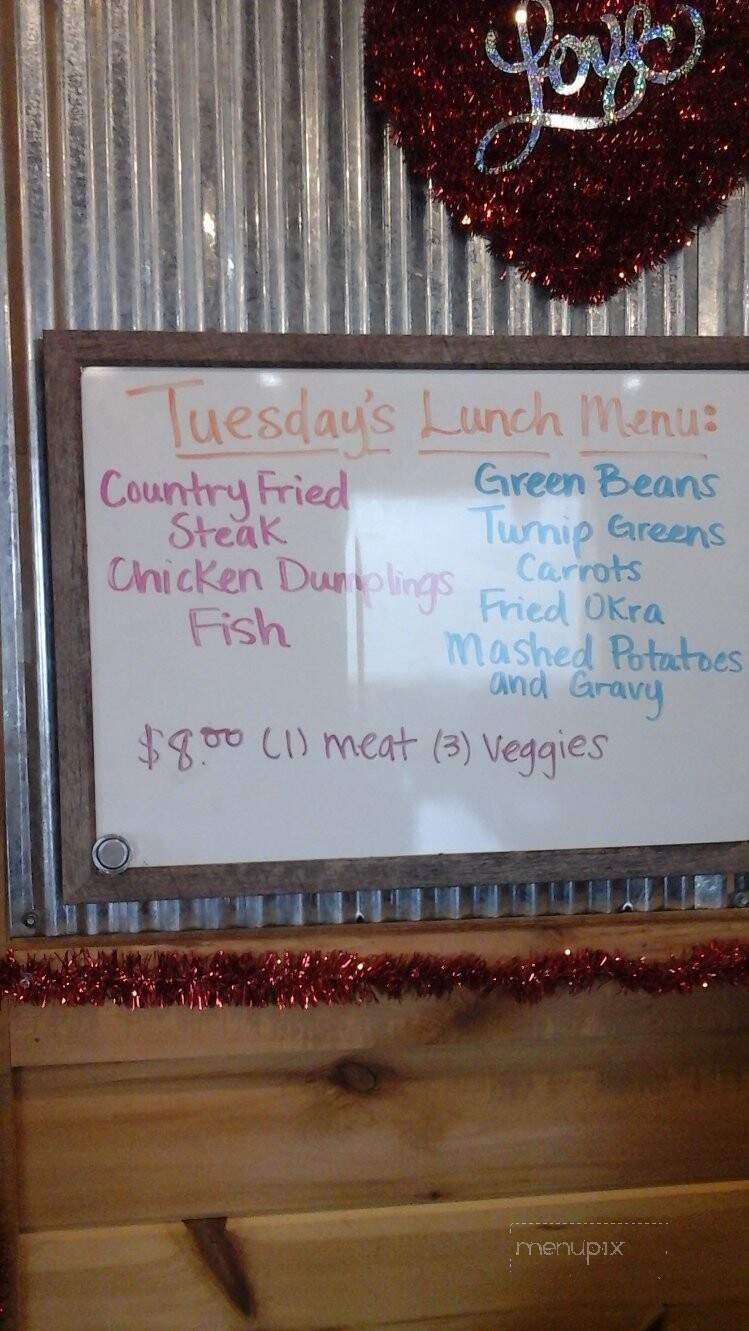 Love
Tuesday's Lunch Menu:
Country Fried
Steak
Chicken Dumplings
Fish
Green Beans
Turnip Greens
Carrots
Fried Okra
Mashed Potatoes
and Gravy
$8.00 (1) meat (3) veggies
menupix